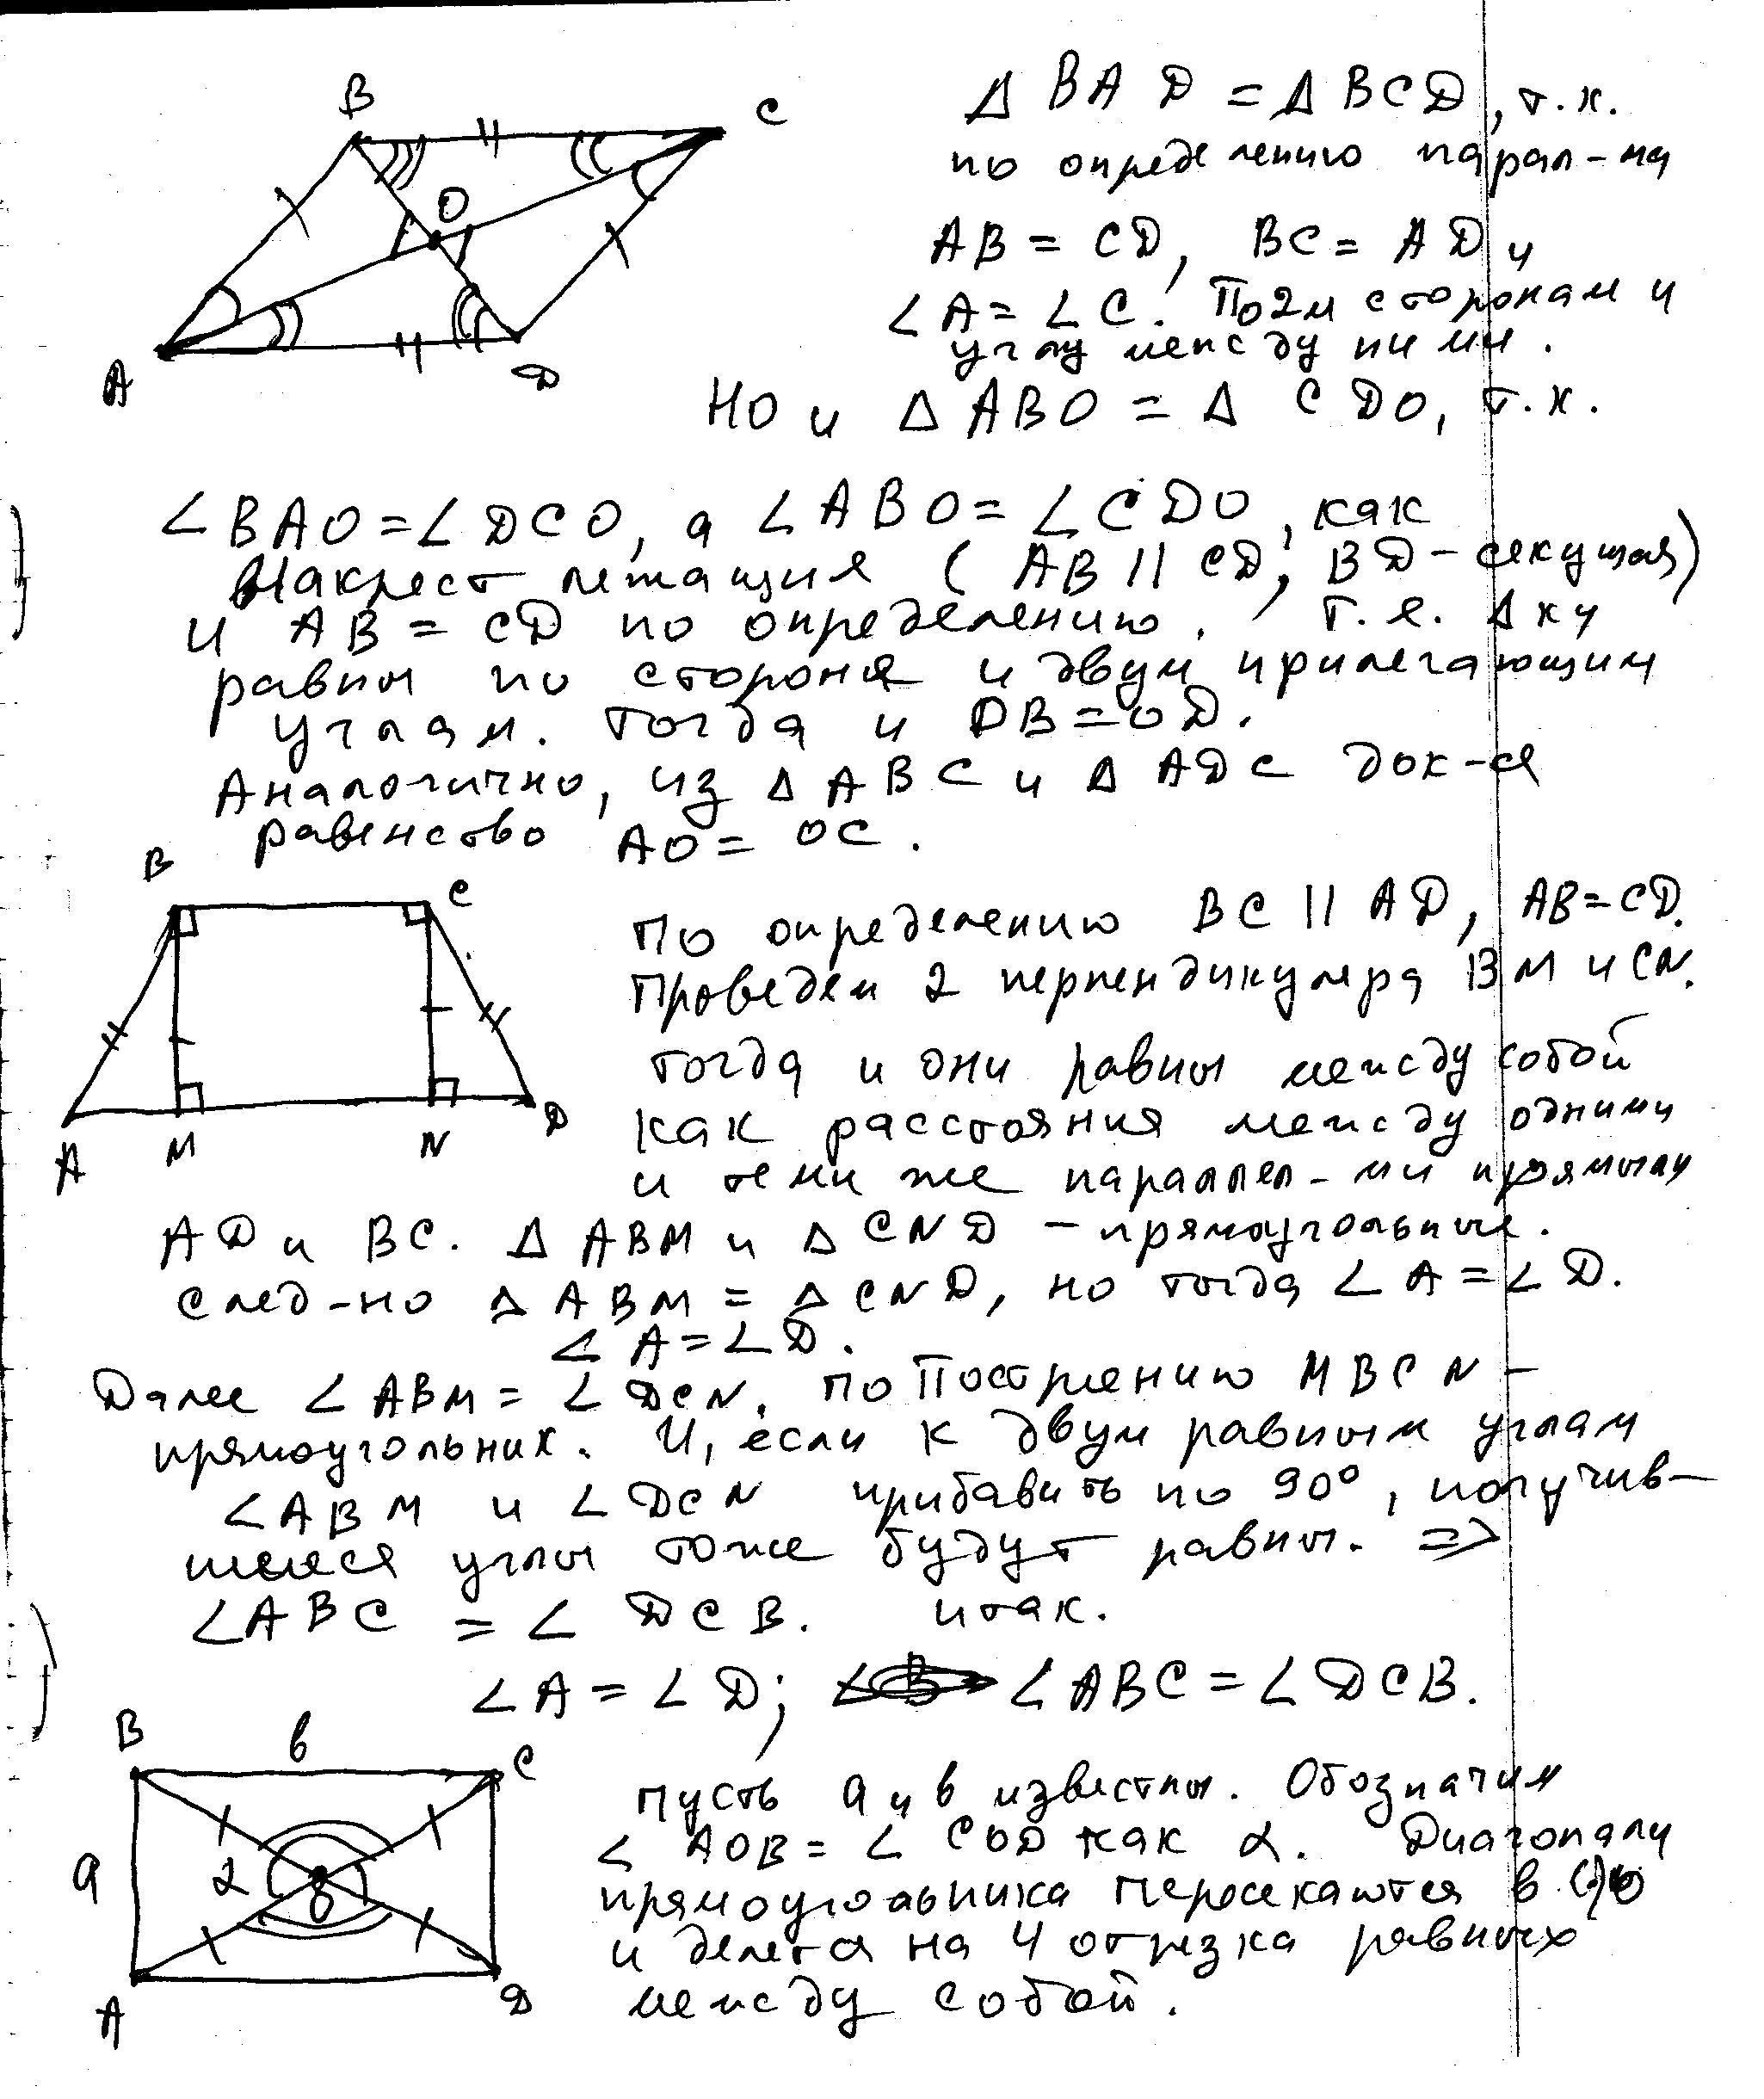 B
C
O
A
D
Δ BAD = Δ BCD, т.к.
по определению парал-ма
AB = CD, BC = AD и
∠A = ∠C. По 2м сторонам и
углу между ними.
Но и Δ ABO = Δ CDO, т.к.
∠BAO = ∠DCO, а ∠ABO = ∠CDO, как
накрест лежащия (AB || CD, BD - секущая)
и AB = CD по определению, т.е. Δ ки
равны по стороня и двум прилегающим
углам. Тогда и OB = OD.
Аналогично, из Δ ABC и Δ ADC док-ся
равенство AO = OC.
B
C
A
M
N
D
По определению BC || AD, AB = CD.
Проведем 2 перпендикуляра BM и CN.
Тогда и они равны между собой
как расстояния между одними
и теми же параллел-ми прямыми
AD и BC. Δ ABM и Δ CND - прямоугольные.
След-но Δ ABM = Δ CND, но тогда ∠A = ∠D.
∠A = ∠D.
Далее ∠ABM = ∠DCN. По построению MBCN -
прямоугольник. И, если к двум равным углам
∠ABM и ∠DCN прибавить по 90°, получив-
шиеся углы тоже будут равны. ⇒
∠ABC = ∠DCB. Итак.
∠A = ∠D; ∠ABC = ∠DCB.
B
в
C
a
α
O
A
D
Пусть a и в известны. Обозначим
∠AOB = ∠COD как α. Диагонали
прямоугольника пересекаются в (·)O
и делятся на 4 отрезка равных
между собой.